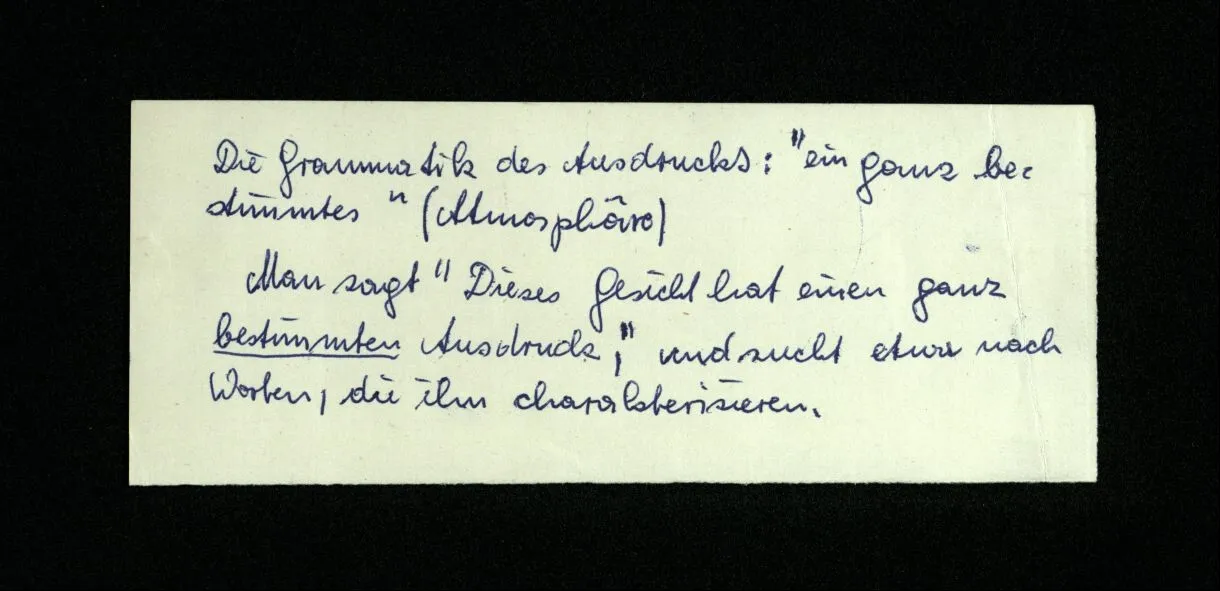 Die Grammatik des Ausdrucks: "ein ganz be-
stimmtes" (Atmosphäre)
Man sagt "Dieses Gesicht hat einen ganz
bestimmten Ausdruck," und sucht etwa nach
Worten, die ihn charakterisieren.